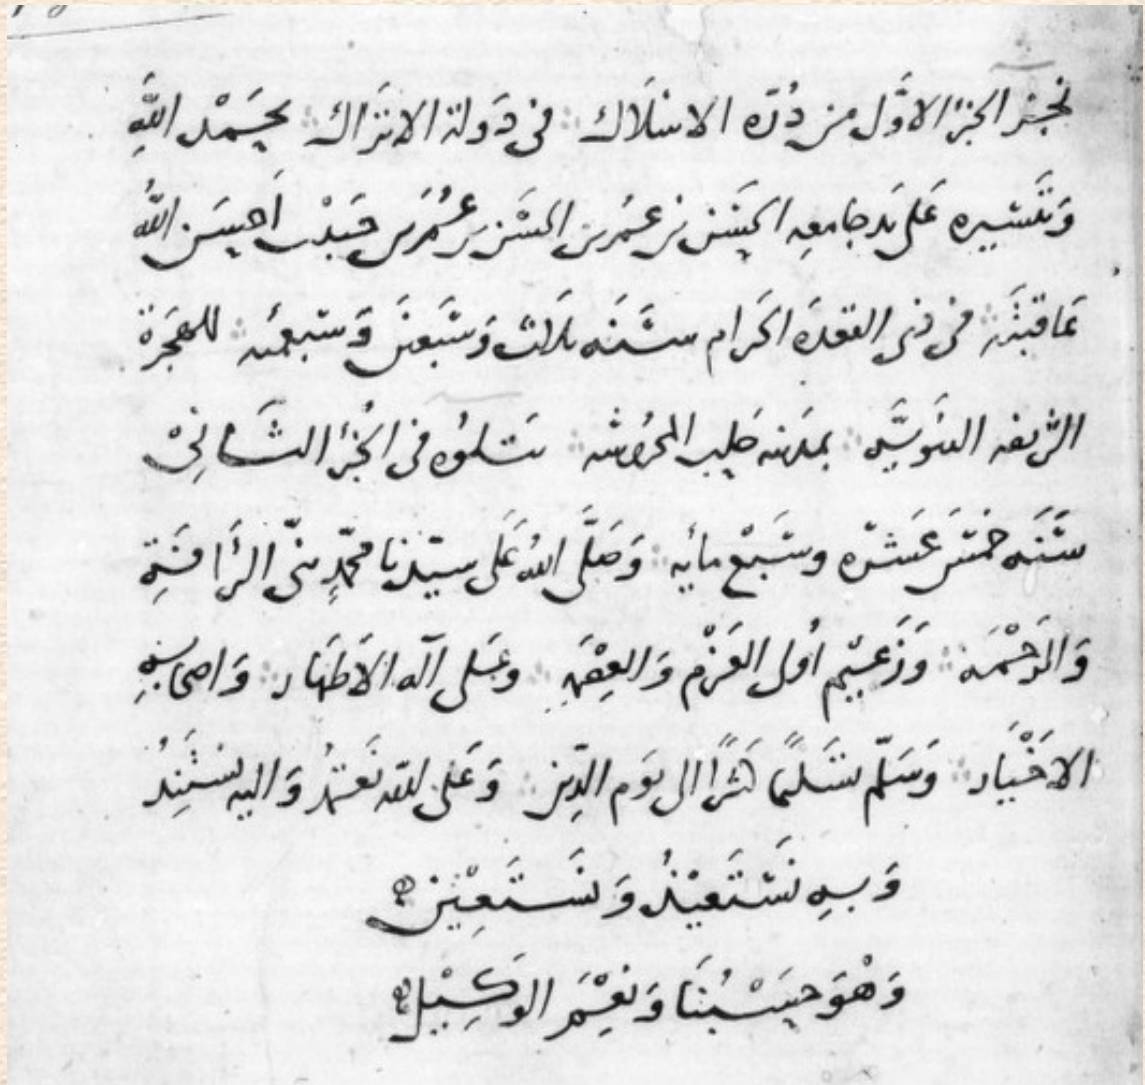 نجز الجزء الاوّل من درّة الاسلاك في دَولة الاتراك بحَمْد اللّهِ
وَتَيسيره عَلى يَد جامعِه الحسَن بن عمَر بن الحسَن بن عُمَر بن حبَيْب اَحسَن اللّهُ
عَاقبتَه في ذي القعدَة الحَرام سَنَه ثلاث وَسَبْعين وَسَبعمئه للهجَرة
الشريفه النبَويَّه بمدينه حَلب المحرُوسَه يَتلوُه في الجُزء الثَانِىْ
سَنَه خمسَ عَشرَة وسَبْع مائه وَصَلَّى اللّهُ عَلى سيّدنا محمّدٍ نبىّ الرأفَةِ
وَالرَحْمَه وَزَعيْم اُولى العَزْم وَالعِصْمَهِ وعَلى آله الاَطهَار وَاصحَابِهِ
الاخْيَار وَسَلّم تسَليمًا كثيرًا الى يَوم الدّين وَعَلى اللّه نَعتمدُ وَاليه نستَنِدُ
وَبهِ نَسْتَعيْذُ وَنَسْتَعِيْن
وَهْوَ حَسْبُنَا وَنِعْمَ الوَكِيْل